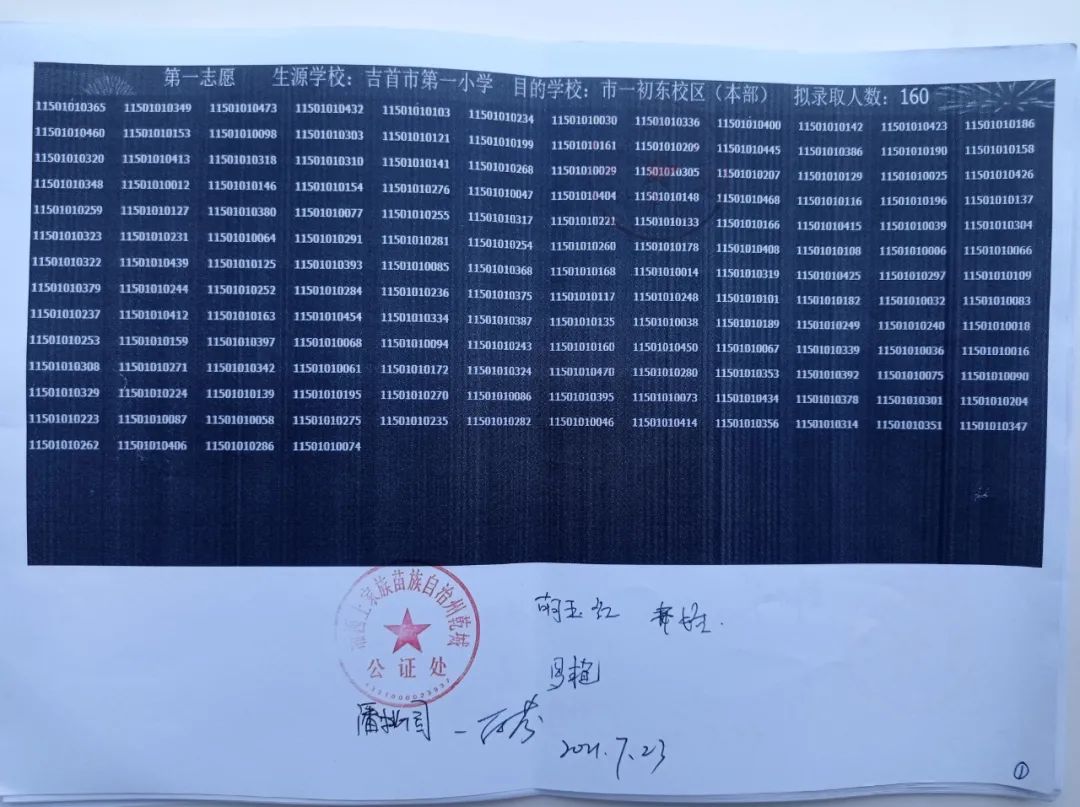 第一志愿 生源学校：吉首市第一小学 目的学校：市一初东校区（本部） 拟录取人数：160
11501010365 11501010349 11501010473 11501010432 11501010103 11501010234 11501010030 11501010336 11501010400 11501010142 11501010423 11501010186
11501010460 11501010153 11501010098 11501010303 11501010121 11501010199 11501010161 11501010209 11501010445 11501010386 11501010190 11501010158
11501010320 11501010413 11501010318 11501010310 11501010141 11501010268 11501010029 11501010305 11501010207 11501010129 11501010025 11501010426
11501010348 11501010012 11501010146 11501010154 11501010276 11501010047 11501010404 11501010148 11501010468 11501010116 11501010196 11501010137
11501010259 11501010127 11501010380 11501010077 11501010255 11501010317 11501010221 11501010133 11501010166 11501010415 11501010039 11501010304
11501010323 11501010231 11501010064 11501010291 11501010281 11501010254 11501010260 11501010178 11501010408 11501010108 11501010006 11501010066
11501010322 11501010439 11501010125 11501010393 11501010085 11501010368 11501010168 11501010014 11501010319 11501010425 11501010297 11501010109
11501010379 11501010244 11501010252 11501010284 11501010236 11501010375 11501010117 11501010248 11501010101 11501010182 11501010032 11501010083
11501010237 11501010412 11501010163 11501010454 11501010334 11501010387 11501010135 11501010038 11501010189 11501010249 11501010240 11501010018
11501010253 11501010159 11501010397 11501010068 11501010094 11501010243 11501010160 11501010450 11501010067 11501010339 11501010036 11501010016
11501010308 11501010271 11501010342 11501010061 11501010172 11501010324 11501010470 11501010280 11501010353 11501010392 11501010075 11501010090
11501010329 11501010224 11501010139 11501010195 11501010270 11501010086 11501010395 11501010073 11501010434 11501010378 11501010301 11501010204
11501010223 11501010087 11501010058 11501010275 11501010235 11501010282 11501010046 11501010414 11501010356 11501010314 11501010351 11501010347
11501010262 11501010406 11501010286 11501010074
湘西土家族苗族自治州乾城
公证处
2021.7.23
①